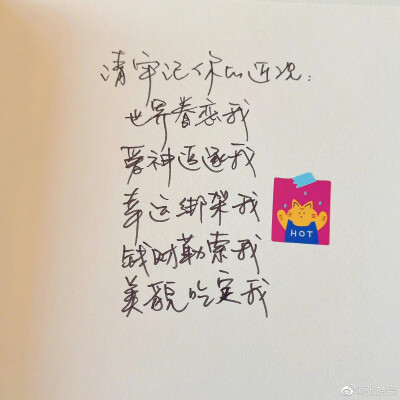 请牢记你的近况：
世界眷恋我
爱神追逐我
幸运绑架我
钱财勒索我
美貌吃定我
HOT